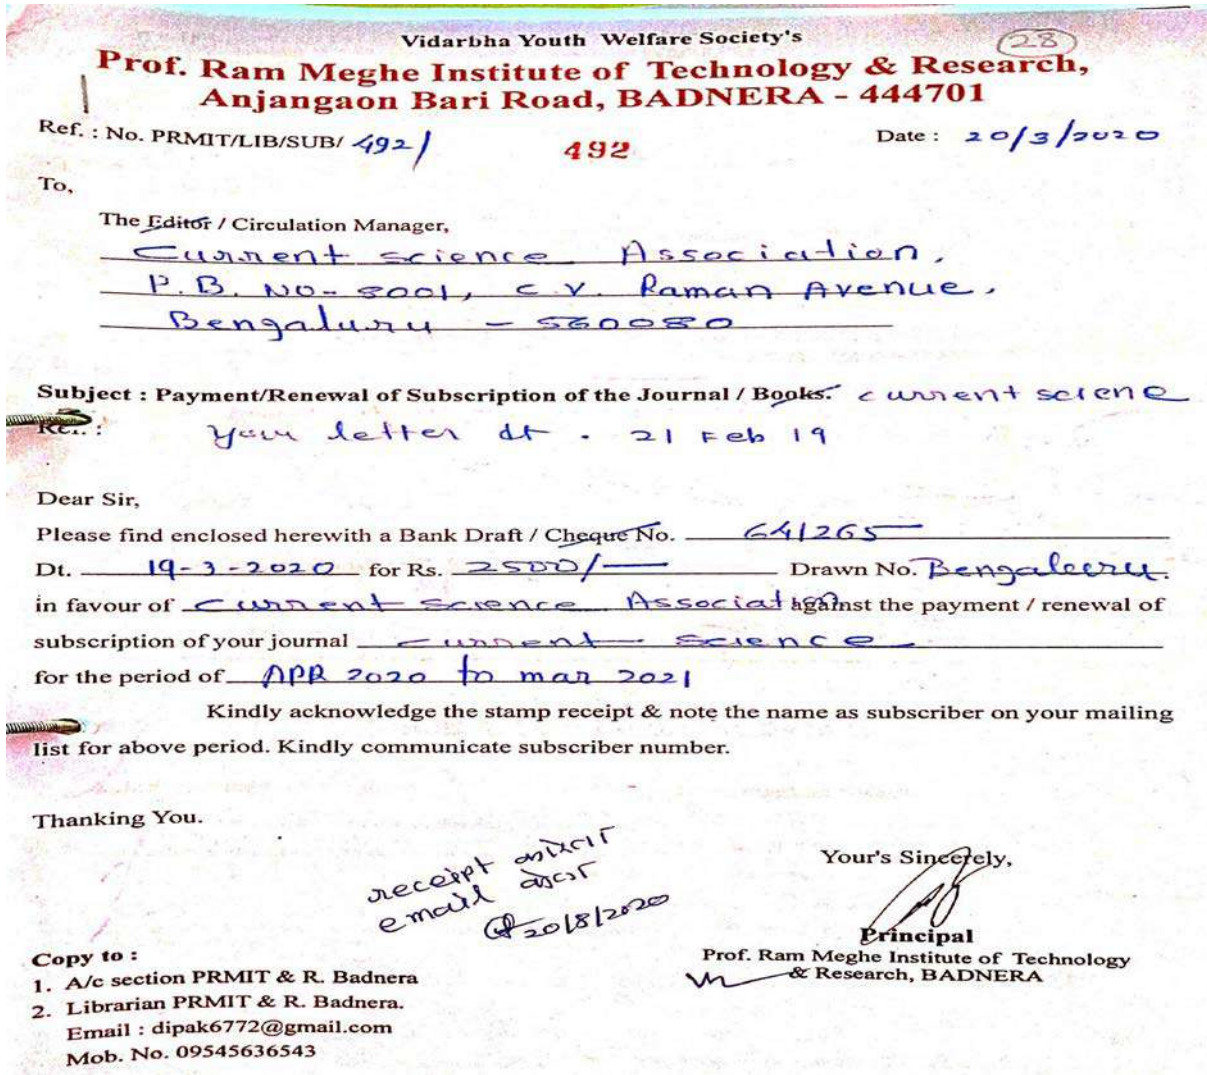 Vidarbha Youth Welfare Society's
28
Prof. Ram Meghe Institute of Technology & Research,
Anjangaon Bari Road, BADNERA - 444701
Ref. : No. PRMIT/LIB/SUB/ 492/
492
Date : 20/3/2020
To,
The Editor / Circulation Manager,
Current science Association,
P.B. NO- 8001, C.V. Raman Avenue,
Bengaluru - 560080
Subject : Payment/Renewal of Subscription of the Journal / Books. current sciene
Ref. : Your letter dt. 21 Feb 19
Dear Sir,
Please find enclosed herewith a Bank Draft / Cheque No. 641265
Dt. 19-3-2020 for Rs. 2500/- Drawn No. Bengaleeru.
in favour of current science Association against the payment / renewal of
subscription of your journal current science
for the period of APR 2020 to mar 2021
Kindly acknowledge the stamp receipt & note the name as subscriber on your mailing
list for above period. Kindly communicate subscriber number.
Thanking You.
receipt
email
20/8/2020
Your's Sincerely,
Principal
Prof. Ram Meghe Institute of Technology
& Research, BADNERA
Copy to :
1. A/c section PRMIT & R. Badnera
2. Librarian PRMIT & R. Badnera.
Email : dipak6772@gmail.com
Mob. No. 09545636543